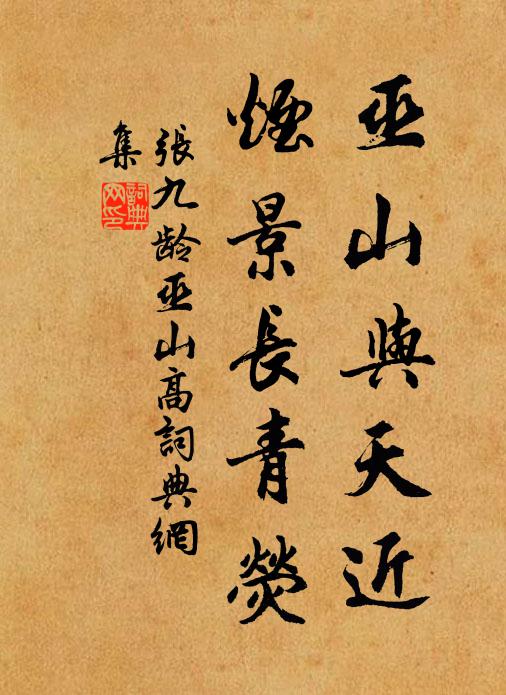 巫山與天近
煙景長青熒
張九齡巫山高詞典網
集
詞典
网印